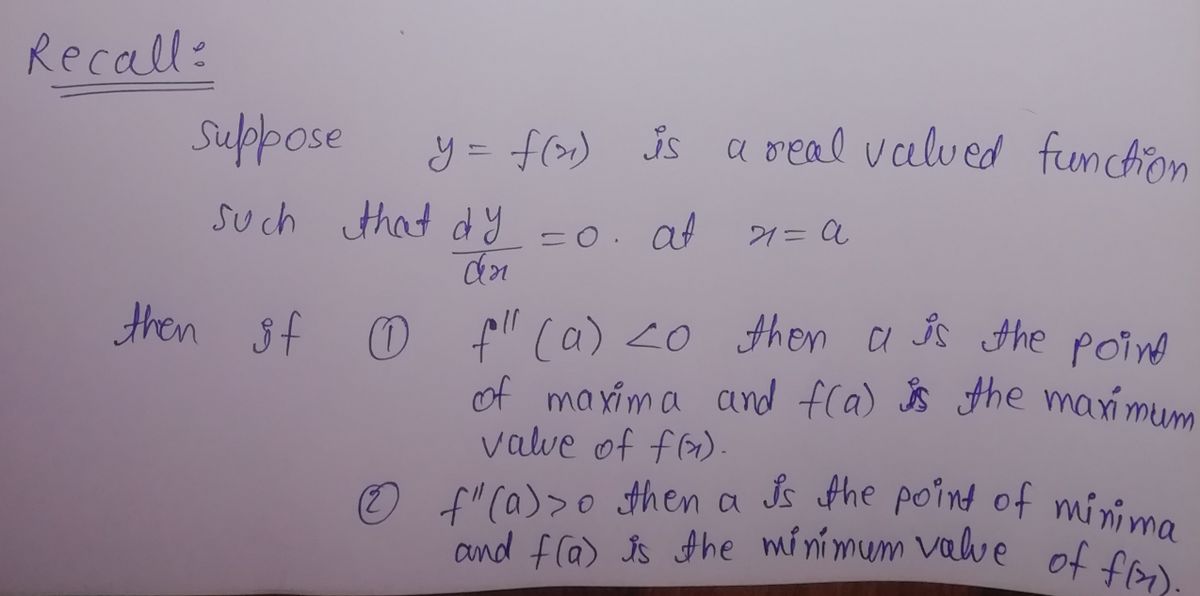 Recall:
suppose y = f(x) is a real valued function
such that dy/dx = 0. at x = a
then if ① f''(a) <0 then a is the point
of maxima and f(a) is the maximum
value of f(x).
② f''(a)>0 then a is the point of minima
and f(a) is the minimum value of f(x).